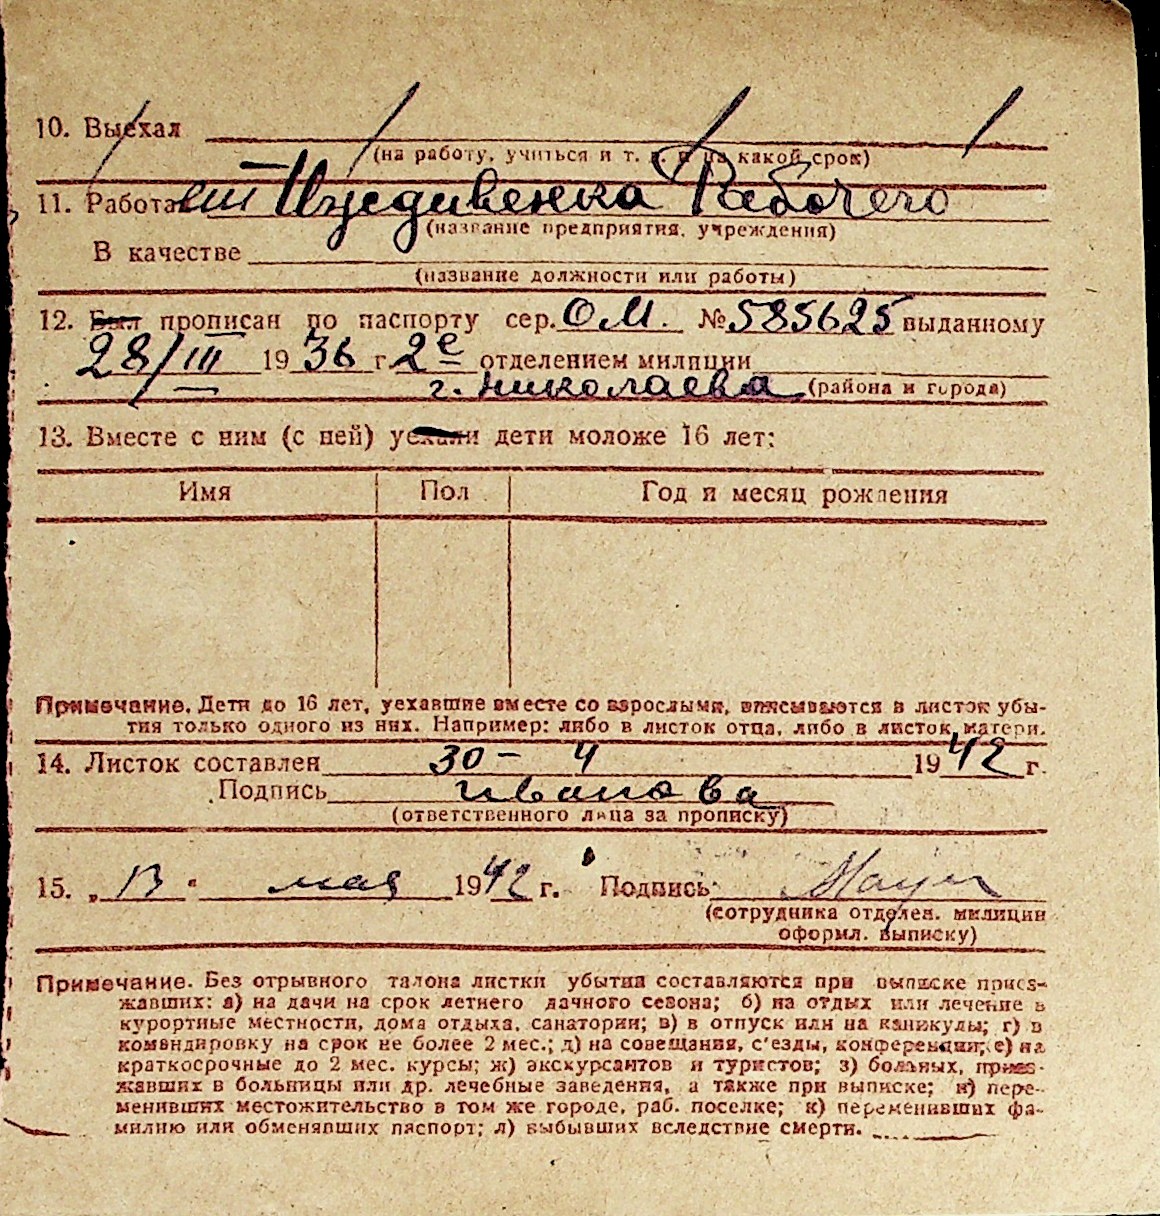 10. Выехал
(на работу, учиться и т. д. и на какой срок)
11. Работает Иждивенка Рабочего
(название предприятия, учреждения)
В качестве
(название должности или работы)
12. Был прописан по паспорту сер. ОМ. № 585625 выданному
28/III 1936 г. 2е отделением милиции
г. Николаева (района и города)
13. Вместе с ним (с ней) уехали дети моложе 16 лет:
Имя Пол Год и месяц рождения
Примечание. Дети до 16 лет, уехавшие вместе со взрослыми, вписываются в листок убы-
тия только одного из них. Например: либо в листок отца, либо в листок матери.
14. Листок составлен 30 – 4 1942 г.
Подпись Иванова
(ответственного лица за прописку)
15. „13" мая 1942 г. Подпись
(сотрудника отделен. милиции
оформл. выписку)
Примечание. Без отрывного талона листки убытия составляются при выписке приез-
жавших: а) на дачи на срок летнего дачного сезона; б) на отдых или лечение в
курортные местности, дома отдыха, санатории; в) в отпуск или на каникулы; г) в
командировку на срок не более 2 мес.; д) на совещания, с'езды, конференции; е) на
краткосрочные до 2 мес. курсы; ж) экскурсантов и туристов; з) больных, приез-
жавших в больницы или др. лечебные заведения, а также при выписке; и) пере-
менивших местожительство в том же городе, раб. поселке; к) переменивших фа-
милию или обменявших паспорт; л) выбывших вследствие смерти.